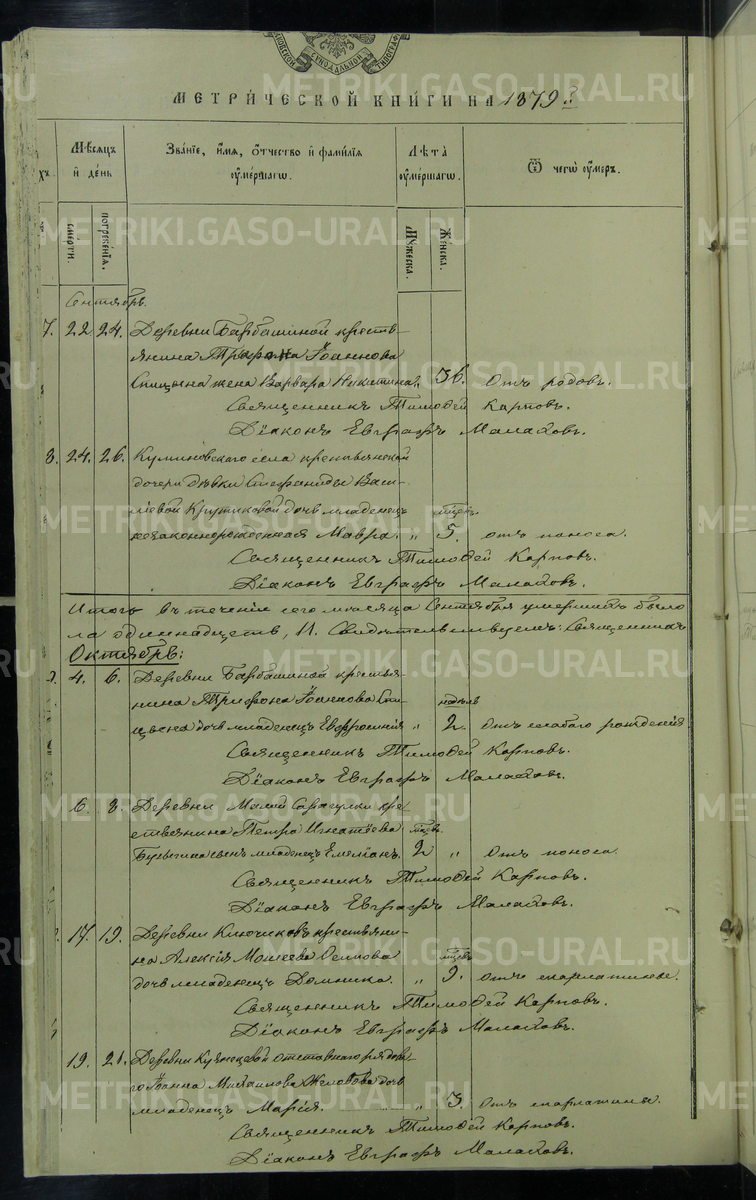 МЕТРИЧЕСКОЙ КНИГИ НА 1879 й
Мѣсяцъ и день
Званіе, имя, отчество и фамилія умершаго.
Лѣта умершаго.
Ѿ чего умеръ.
смерти.
погребенія.
Мужеска.
Женска.
Сентябрь.
7. 22 24. Деревни Барбашиной кресть-
янина Трифона Іоаннова
Спицына жена Варвара Никитина. 36. Отъ родовъ.
Священникъ Тимоѳей Карповъ.
Діаконъ Евграфъ Малаховъ.
8. 24. 26. села крестьянской
дочери дѣвки Стефаниды Васи-
ліевой Крутиковой дочь младенецъ мѣсяц.
незаконнорожденная Мавра. „ 5. отъ поноса.
Священникъ Тимоѳей Карповъ.
Діаконъ Евграфъ Малаховъ.
Итого въ теченіе сего мѣсяца Сентября умершихъ было
одиннадцать, 11. Священникъ
Октябрь:
4. 6. Деревни Барбашиной крестья-
нина Трифона Іоаннова Спи- недѣль
цына дочь младенецъ Евфросинія „ 2. Отъ слабаго рожденія
Священникъ Тимоѳей Карповъ.
Діаконъ Евграфъ Малаховъ.
6. 8. Деревни Малой Сарагулки кре-
стьянина Петра Игнатіева мѣсяц.
сынъ младенецъ Емеліанъ. 2 „ Отъ поноса.
Священникъ Тимоѳей Карповъ.
Діаконъ Евграфъ Малаховъ.
17. 19. Деревни Ключиковъ крестьяни-
на Алексія Моисеева мѣсяц.
дочь младенецъ Домника. „ 9. отъ скарлатины.
Священникъ Тимоѳей Карповъ.
Діаконъ Евграфъ Малаховъ.
19. 21. Деревни Кузнецовой отставнаго рядов-
го Іоанна Михаилова дочь
младенецъ Марія. „ 3. Отъ скарлатины.
Священникъ Тимоѳей Карповъ.
Діаконъ Евграфъ Малаховъ.
METRIKI.GASO-URAL.RU